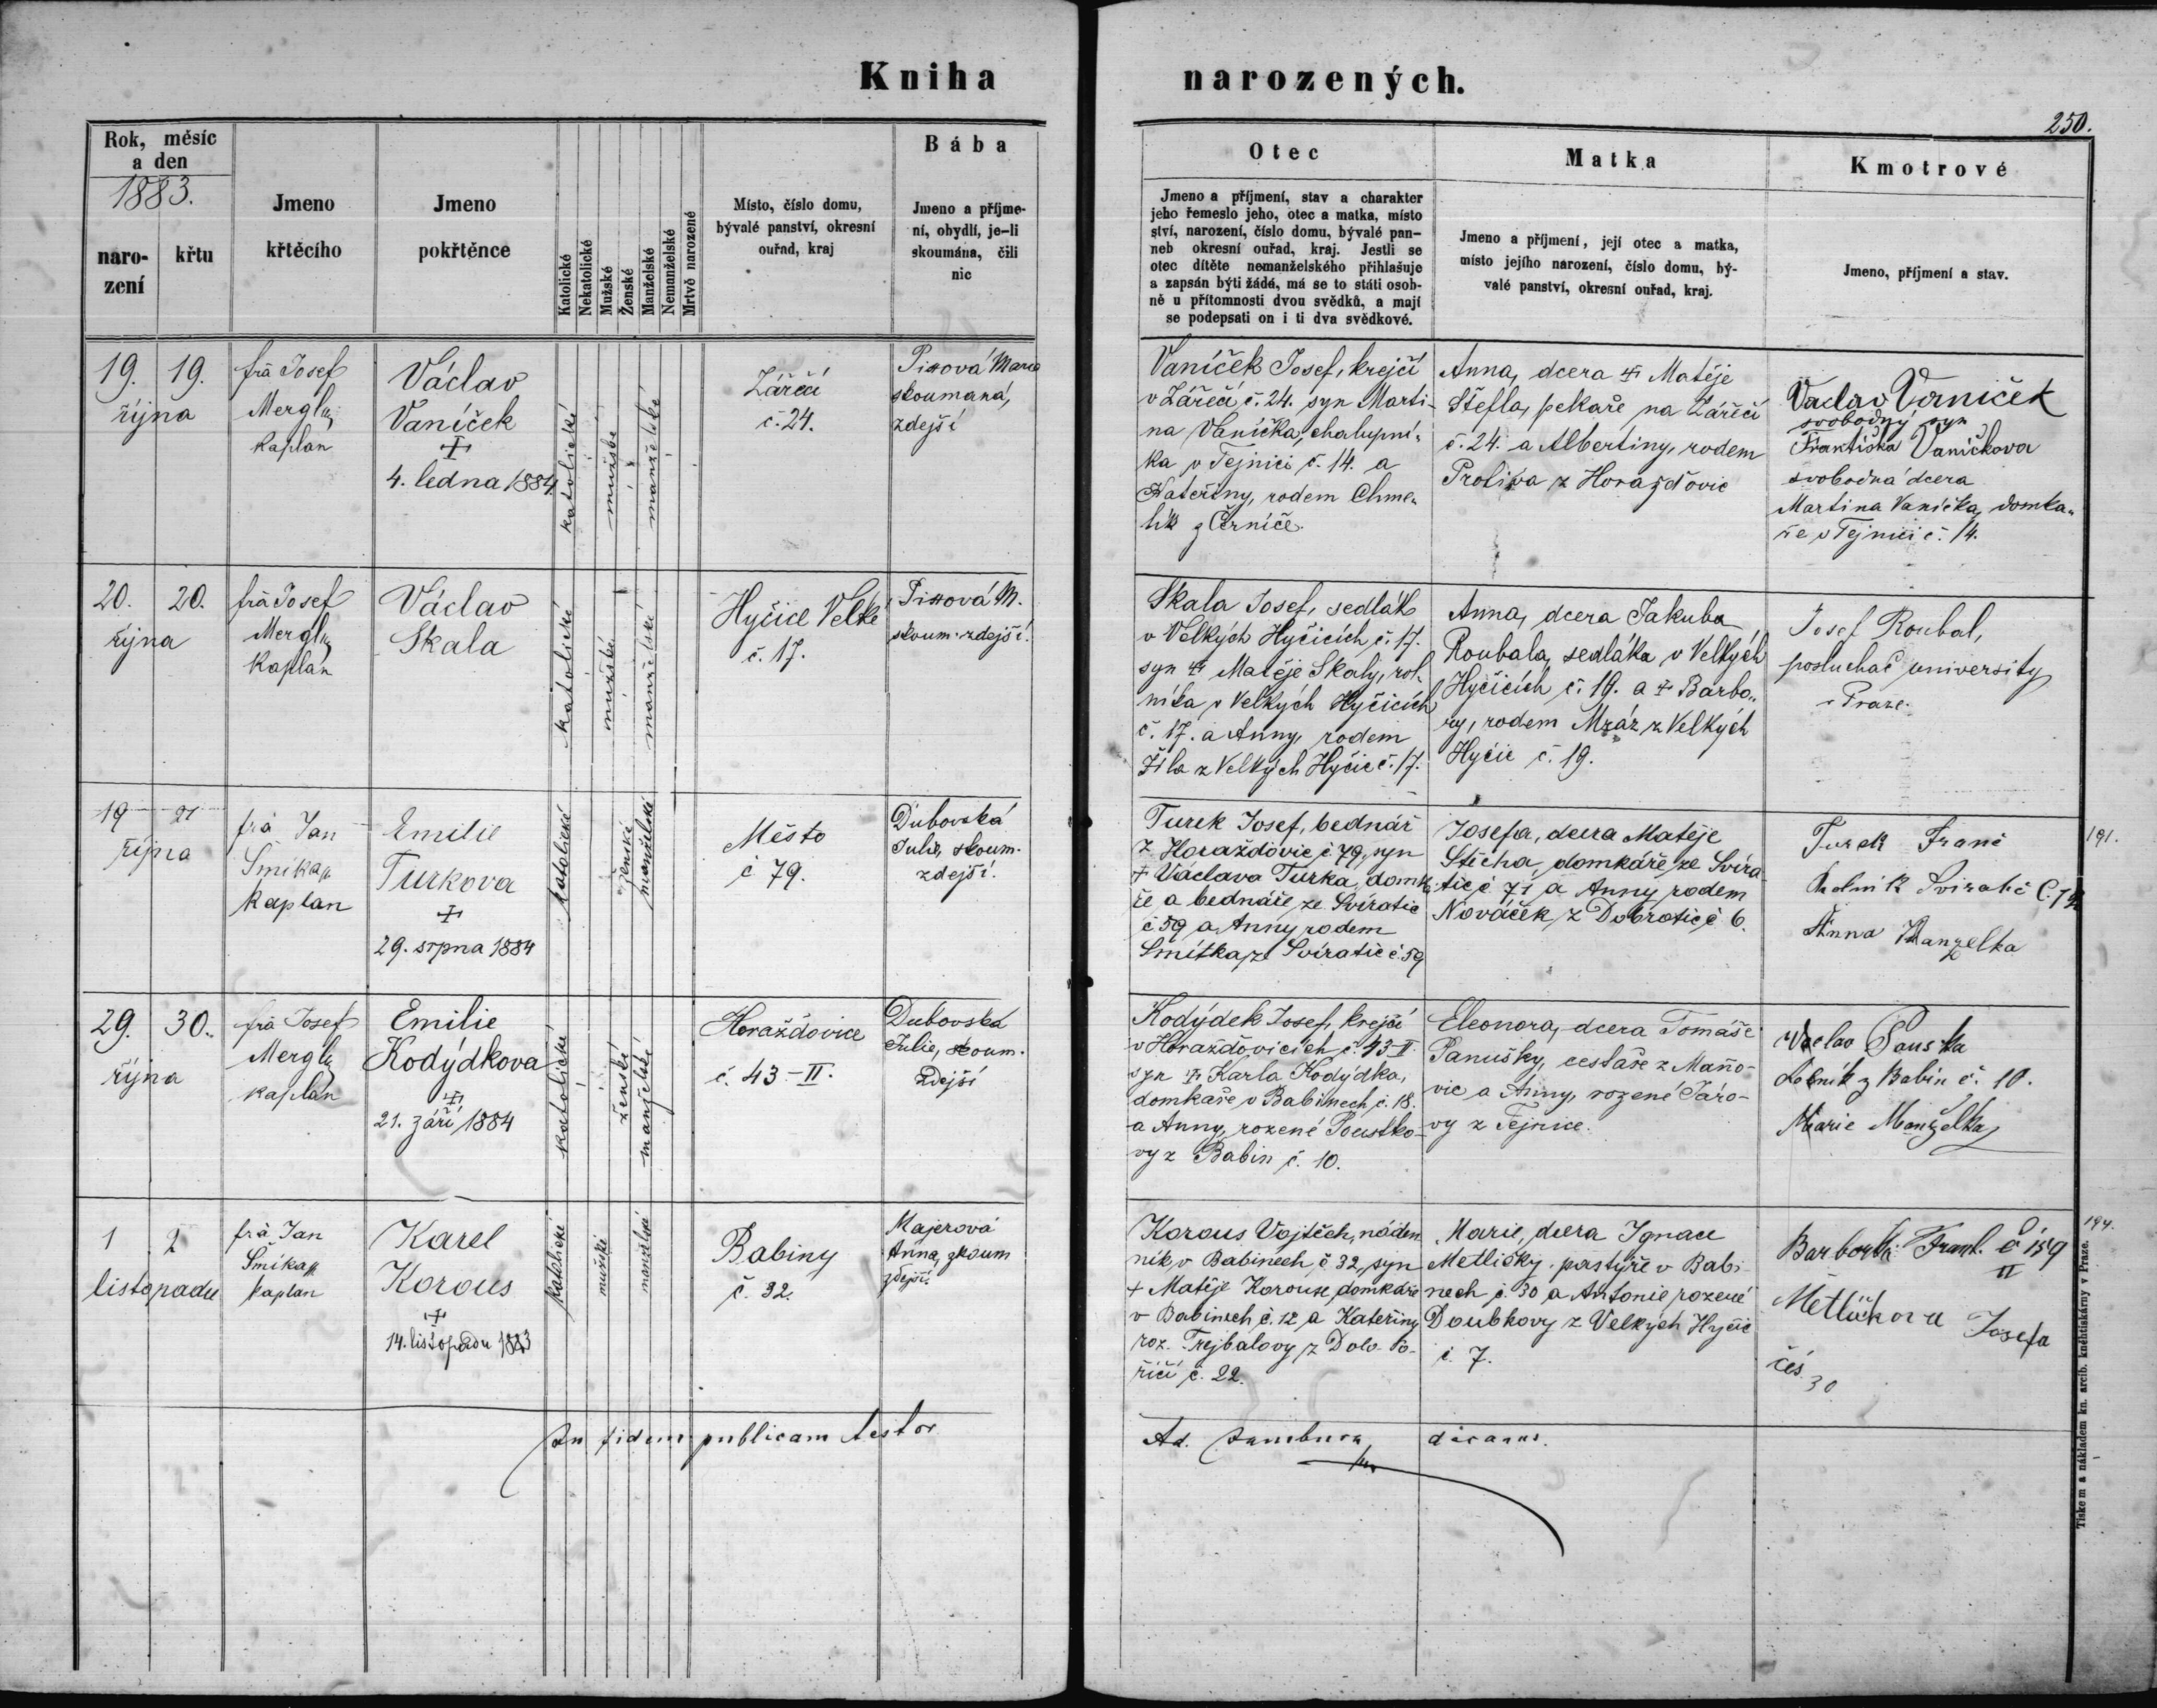 Kniha narozených.
250.
Rok, měsíc
a den
1883.
naro-
zení
křtu
Jmeno
křtěcího
Jmeno
pokřtěnce
Katolické
Nekatolické
Mužské
Ženské
Manželské
Nemanželské
Mrtvě narozené
Místo, číslo domu,
bývalé panství, okresní
ouřad, kraj
Bába
Jmeno a příjme-
ní, obydlí, je-li
skoumána, čili
nic
Otec
Jmeno a příjmení, stav a charakter
jeho řemeslo jeho, otec a matka, místo
ství, narození, číslo domu, bývalé pan-
neb okresní ouřad, kraj. Jestli se
otec dítěte nemanželského přihlašuje
a zapsán býti žádá, má se to státi osob-
ně u přítomnosti dvou svědků, a mají
se podepsati on i ti dva svědkové.
Matka
Jmeno a příjmení, její otec a matka,
místo jejího narození, číslo domu, bý-
valé panství, okresní ouřad, kraj.
Kmotrové
Jmeno, příjmení a stav.
19. 19.
října
fra Josef
Mergl
kaplan
Václav
Vaníček
+
4. ledna 1884
katolické
mužské
manželské
Zářečí
č. 24.
Marie
skoumaná,
zdejší
Vaníček Josef, krejčí
v Zářečí č. 24. syn Marti-
na Vaníčka, chalupní-
ka v Tejnici č. 14. a
Kateřiny, rodem Chme-
lík z Černíče.
Anna, dcera + Matěje
Štefla, pekaře na Zářečí
č. 24. a Albertiny, rodem
z Horažďovic
Vaclav Vaníček
svobodný syn
Františka Vaničkova
svobodná dcera
Martina Vaníčka, domka-
ře v Tejnici č. 14.
20. 20.
října
fra Josef
Mergl
kaplan
Václav
Skala
katolické
mužské
manželské
Hyčice Velké
č. 17.
M.
skoum. zdejší.
Skala Josef, sedlák
v Velkých Hyčicích č. 17.
syn + Matěje Skaly, rol-
níka v Velkých Hyčicích
č. 17. a Anny, rodem
Žíla z Velkých Hyčic č. 17.
Anna, dcera Jakuba
Roubala, sedláka v Velkých
Hyčicích č. 19. a + Barbo-
ry, rodem Mráz z Velkých
Hyčic č. 19.
Josef Roubal,
posluchač university
v Praze.
19 21
října
fra Jan
kaplan
Emilie
Turkova
+
29. srpna 1884
katolické
ženské
manželské
Město
č 79.
Dubovská
Julie, skoum.
zdejší.
Turek Josef, bednář
z Horažďovic č. 79, syn
+ Václava Turka, domká-
ře a bednáře ze Svíratic
č 59 a Anny rodem
Smitka ze Svíratic č. 59
Josefa, dcera Matěje
Sticha, domkáře ze Svíra-
tic č. 71 a Anny rodem
Nováček z Dobrotic č 6.
Turek Franc
191.
Anna
29. 30.
října
fra Josef
Mergl
kaplan
Emilie
Kodýdkova
+
21. září 1884
katolické
ženské
manželské
Horažďovice
č. 43-II.
Dubovská
Julie, skoum.
zdejší
Kodýdek Josef, krejčí
v Horažďovicích č. 43-II.
syn + Karla Kodýdka,
domkaře v Babinech č. 18.
a Anny, rozené Poustko-
vy z Babin č. 10.
Eleonora, dcera Tomáše
Panušky, cestaře z Maňo-
vic a Anny, rozené Járo-
vy z Tejnice.
Vaclav Pouska
z Babin č. 10.
Marie Manželka
1 2
listopadu
fra Jan
kaplan
Karel
Korous
+
14. listopadu 1883
katolické
mužské
manželské
Babiny
č. 32.
Majerová
Anna, zkoum
zdejší.
Korous Vojtěch, náden-
ník, v Babinech č 32, syn
+ Matěje Korouse, domkáře
v Babinech č. 12 a Kateřiny
roz. Trejbalovy z Dolo. Po-
říčí č. 22.
Marie, dcera Ignace
Metličky, pastýře v Babi-
nech č. 30 a Antonie rozené
Doubkovy z Velkých Hyčic
č. 7.
194.
Frant. č 159
II
Metličkova Josefa
čís.
30
In fidem publicam testor
Ad. decanus.
Tiskem a nákladem kn. arcib. kněhtiskárny v Praze.